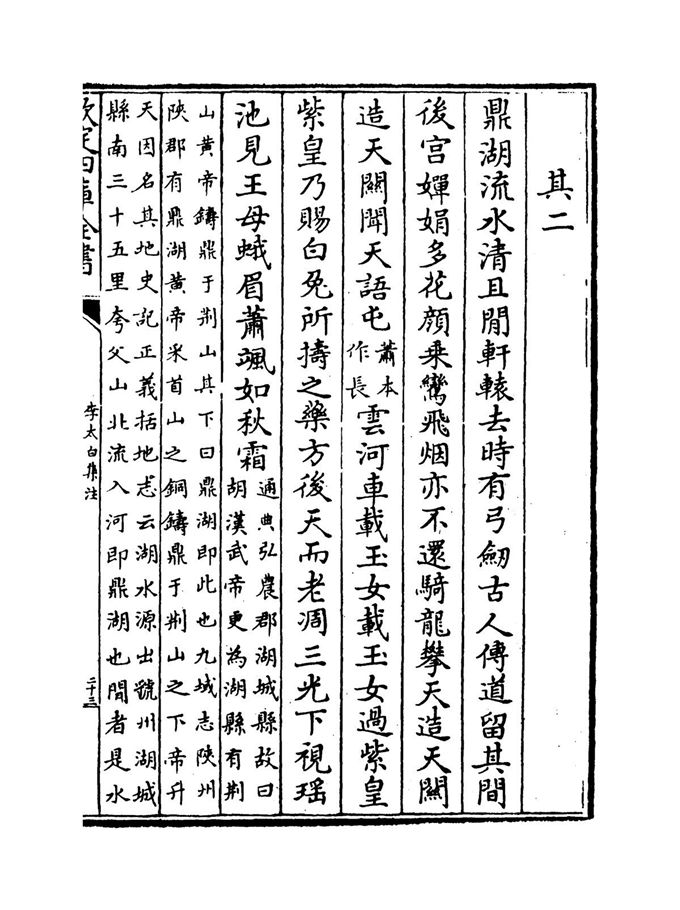 其二
鼎湖流水清且閒軒轅去時有弓劒古人傳道留其間
後宫嬋娟多花顔乗鸞飛烟亦不還騎龍攀天造天關
造天關聞天語屯蕭本作長雲河車載玉女載玉女過紫皇
紫皇乃賜白兔所擣之藥方後天而老凋三光下視瑶
池見王母蛾眉蕭颯如秋霜
通典弘農郡湖城縣故曰
胡漢武帝更為湖縣有荆
山黄帝鑄鼎于荆山其下曰鼎湖即此也九城志陜州
陜郡有鼎湖黄帝采首山之銅鑄鼎于荆山之下帝升
天因名其地史記正義括地志云湖水源出虢州湖城
縣南三十五里夸父山北流入河即鼎湖也閒者是水
欽定四庫全書
李太白集注
二十三